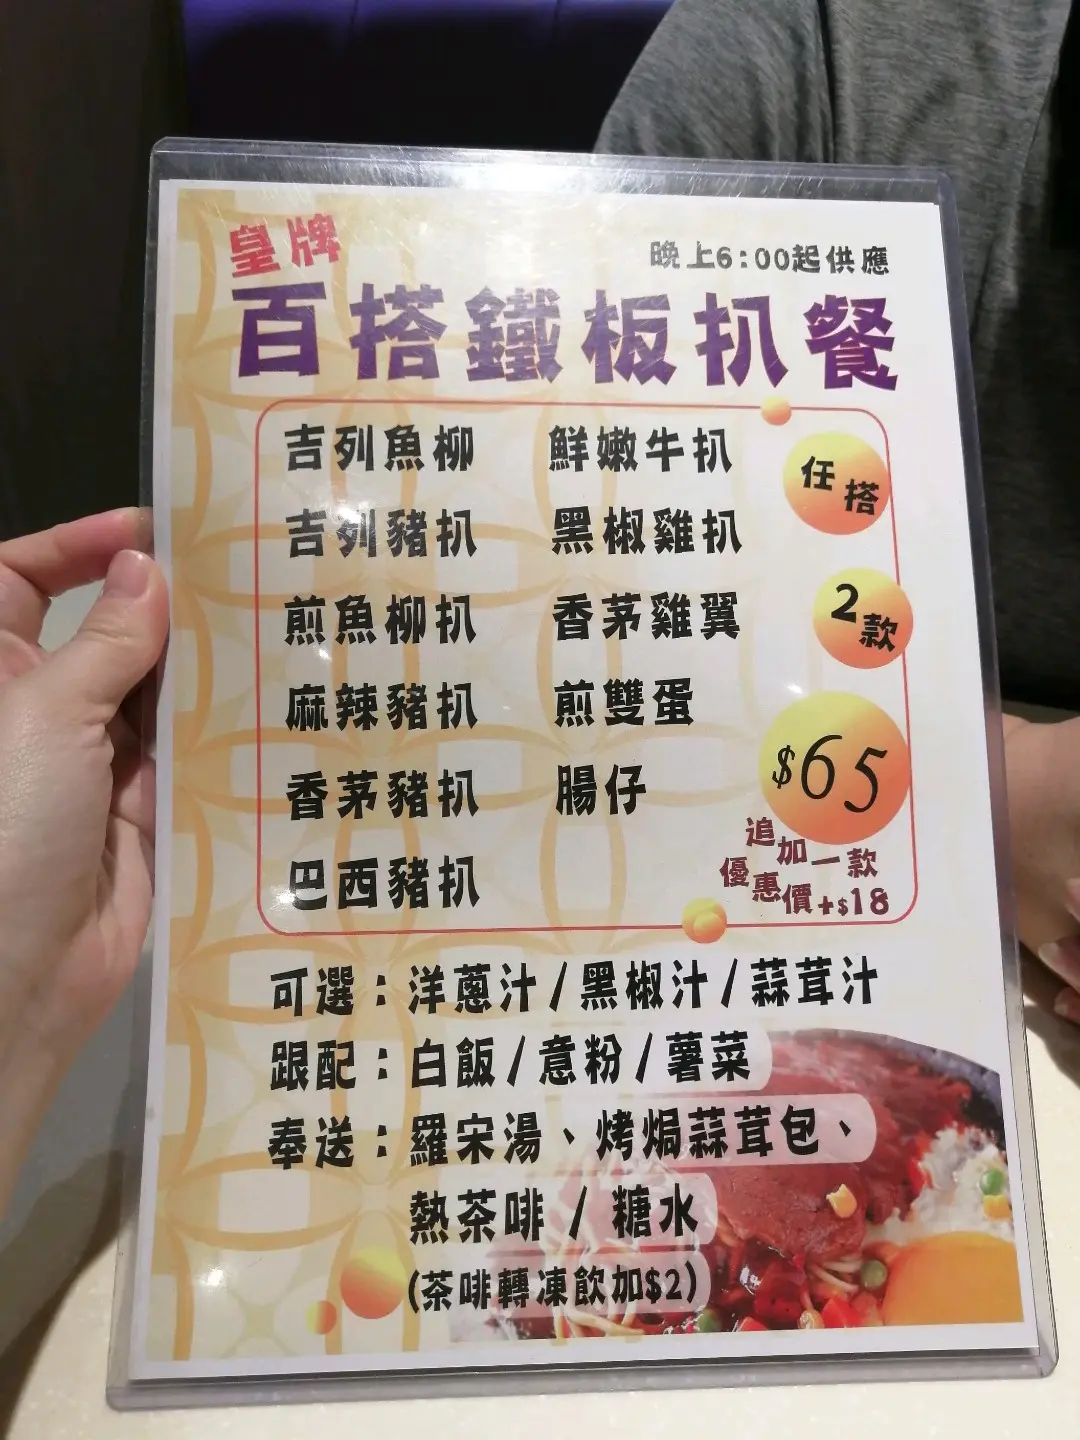 皇牌
晚上6:00起供應
百搭鐵板扒餐
吉列魚柳
鮮嫩牛扒
吉列豬扒
黑椒雞扒
煎魚柳扒
香茅雞翼
麻辣豬扒
煎雙蛋
香茅豬扒
腸仔
巴西豬扒
任搭
2款
$65
追加一款
優惠價+$18
可選：洋蔥汁/黑椒汁/蒜茸汁
跟配：白飯/意粉/薯菜
奉送：羅宋湯、烤焗蒜茸包、
熱茶啡 / 糖水
(茶啡轉凍飲加$2)